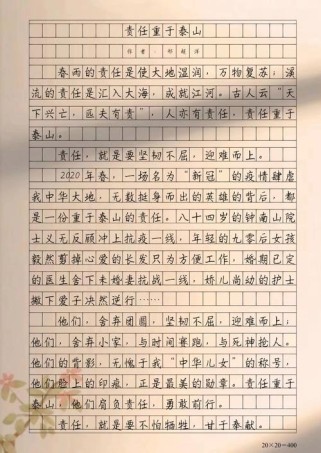 责任重于泰山
作者：邹颖洋
春雨的责任是使大地温润，万物复苏；溪
流的责任是汇入大海，成就江河。古人云“天
下兴亡，匹夫有责”，人亦有责任，责任重于
泰山。
责任，就是要坚韧不屈，迎难而上。
2020年春，一场名为“新冠”的疫情肆虐
我中华大地，无数挺身而出的英雄的背后，都
是一份重于泰山的责任。八十四岁的钟南山院
士义无反顾冲上抗疫一线，年轻的九零后女孩
毅然剪掉心爱的长发只为方便工作，婚期已定
的医生舍下未婚妻抗战一线，娇儿尚幼的护士
撇下爱子决然逆行……
他们，舍弃团圆，坚韧不屈，迎难而上；
他们，舍弃小家，与时间赛跑，与死神抢人。
他们的背影，无愧于我“中华儿女”的称号，
他们脸上的印痕，正是最美的勋章。责任重于
泰山，他们肩负责任，勇敢前行。
责任，就是要不怕牺牲，甘于奉献。
20×20=400